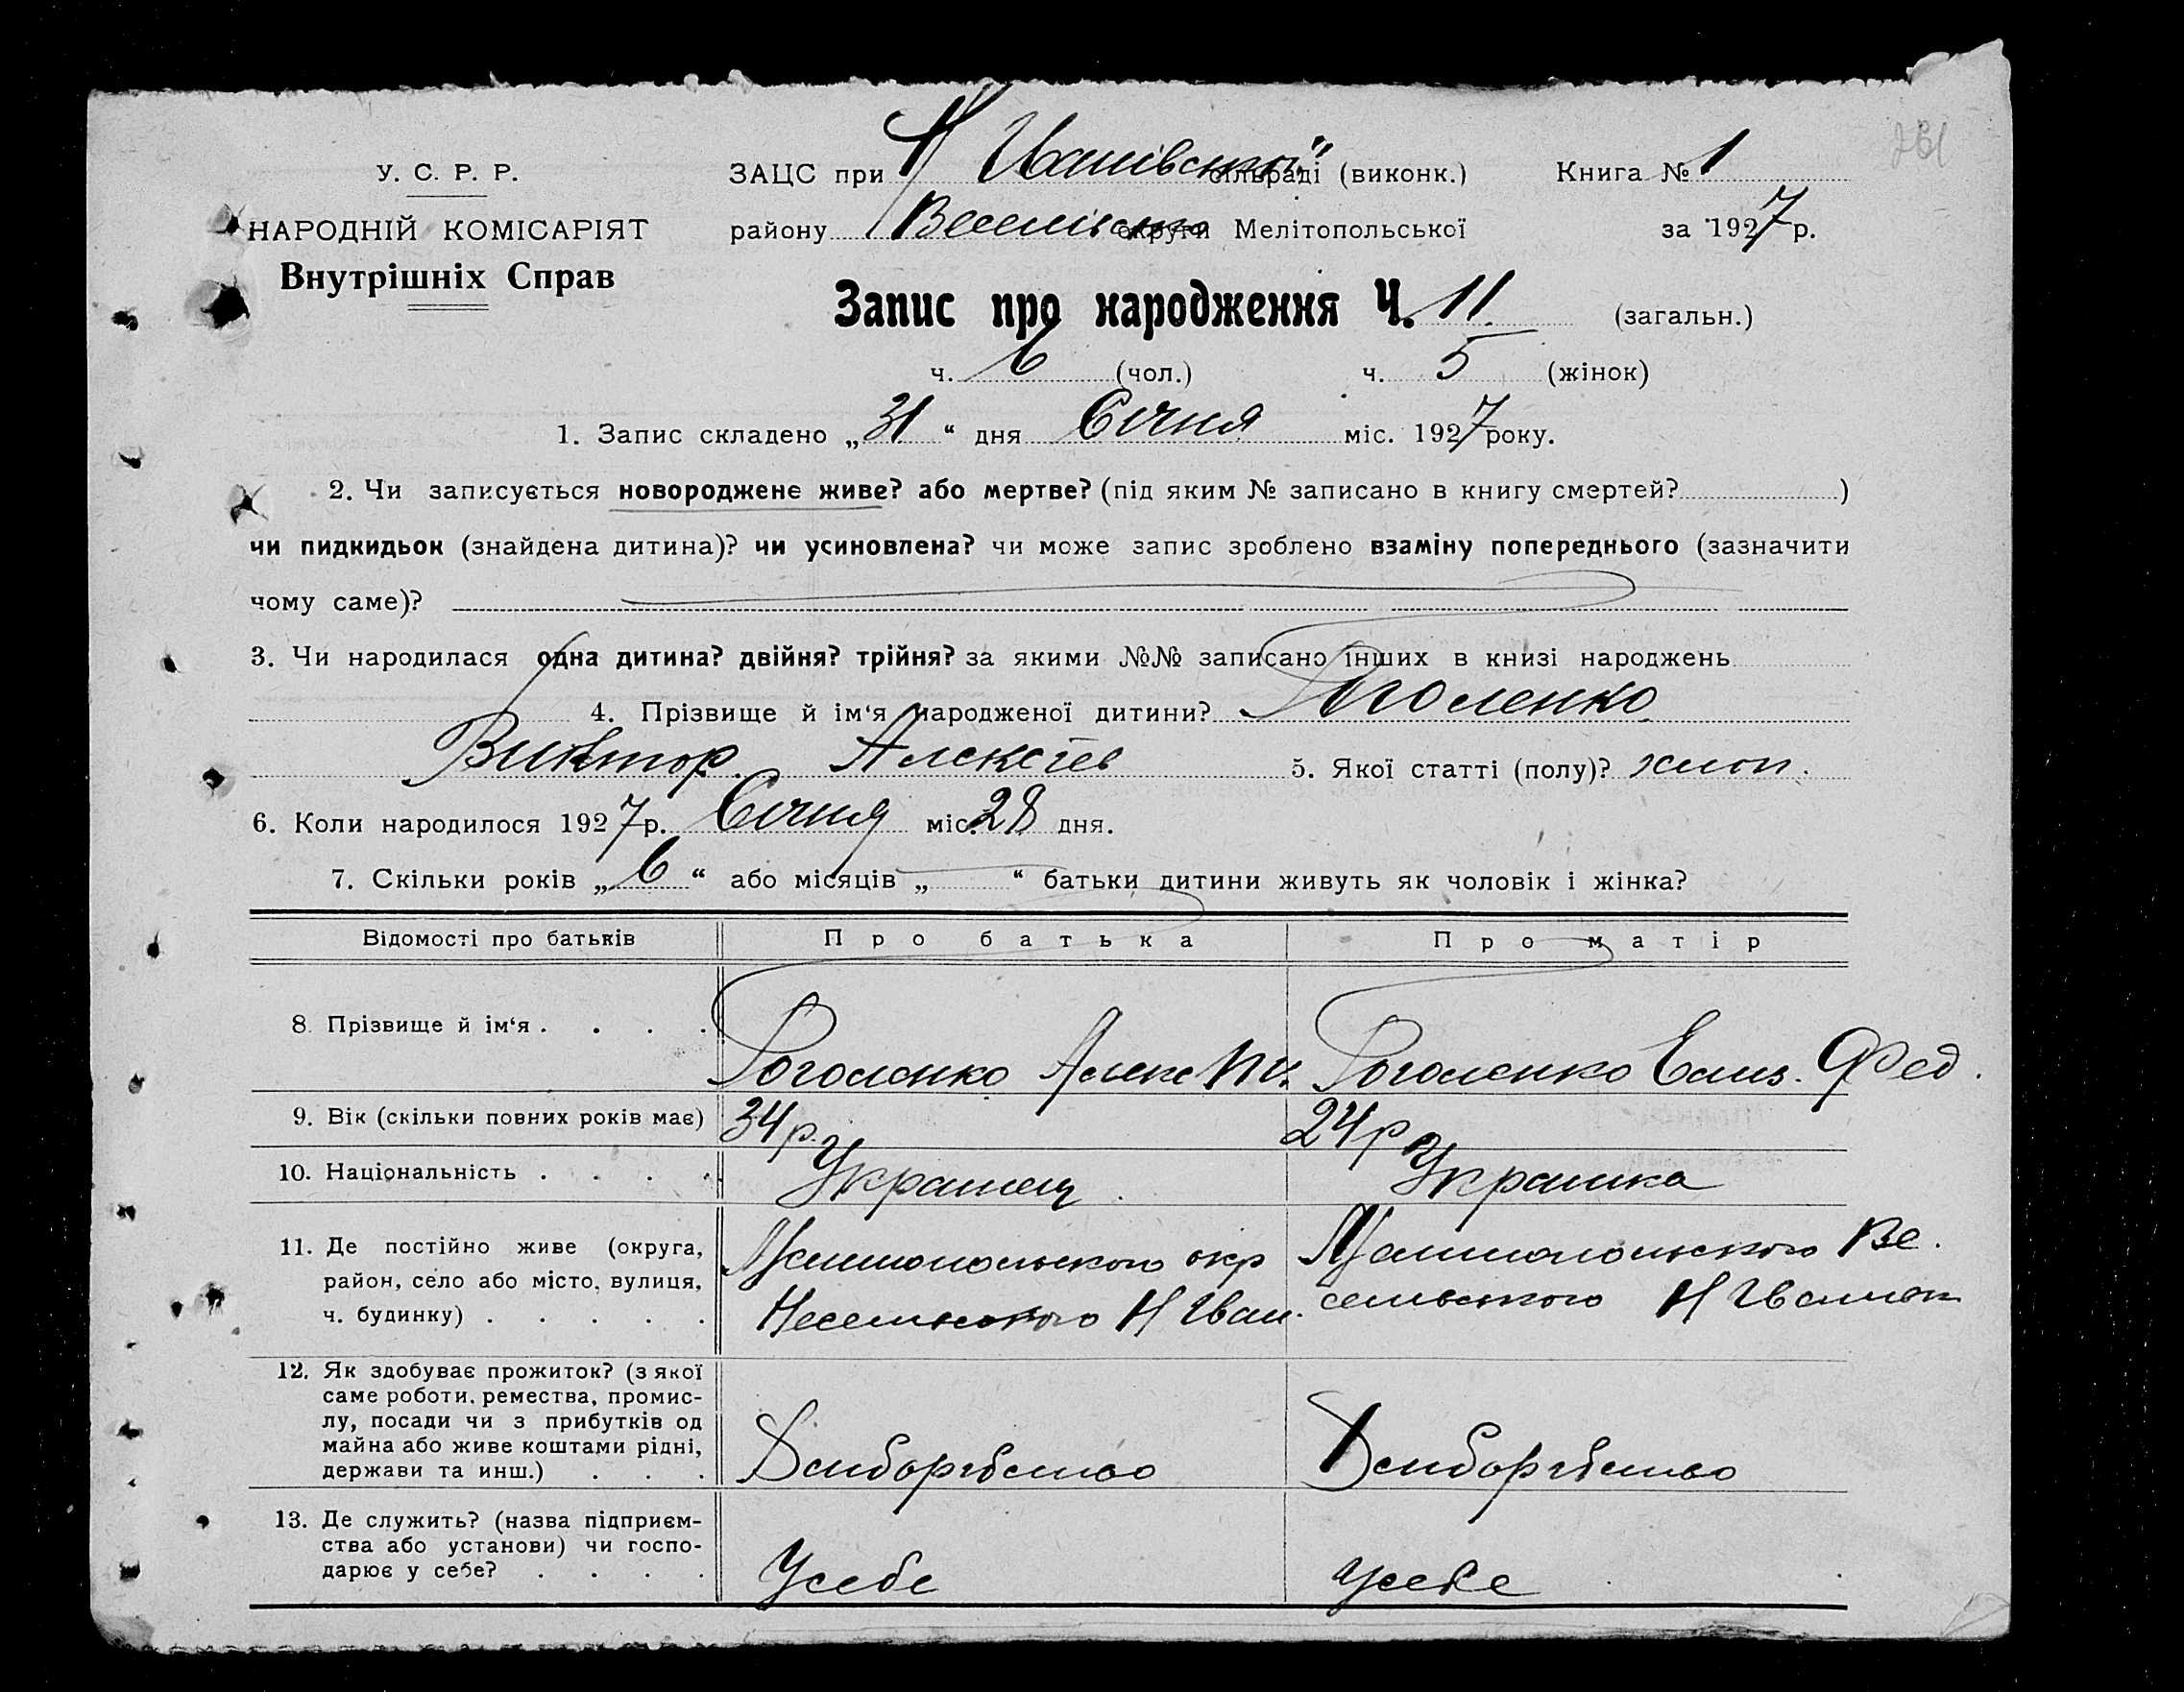 261
У. С. Р. Р.
НАРОДНІЙ КОМІСАРІЯТ
Внутрішніх Справ
ЗАЦС при Н Іванівській сільраді (виконк.) Книга № 1
району Веселівсько округи Мелітопольської за 1927 р.
Запис про народження Ч. 11 (загальн.)
ч. 6 (чол.) ч. 5 (жінок)
1. Запис складено „31“ дня Січня міс. 1927 року.
2. Чи записується новороджене живе? або мертве? (під яким № записано в книгу смертей? )
чи пидкидьок (знайдена дитина)? чи усиновлена? чи може запис зроблено взаміну попереднього (зазначити
чому саме)?
3. Чи народилася одна дитина? двійня? трійня? за якими №№ записано інших в книзі народжень
4. Прізвище й ім‘я народженої дитини? Роголенко
Виктор Алексіев 5. Якої статті (полу)? хлоп.
6. Коли народилося 1927 р. Січня міс. 28 дня.
7. Скільки років „6“ або місяців „ “ батьки дитини живуть як чоловік і жінка?
Відомості про батьків Про батька Про матір
8. Прізвище й ім‘я . . . . Роголенко Алекс Роголенко Елиз. Фед.
9. Вік (скільки повних років має) 34 р. 24 р
10. Національність . . . . Украинец Украинка
11. Де постійно живе (округа,
район, село або місто, вулиця,
ч. будинку) . . . . .
Мелитопольского окр
Веселивского Н Иван.
Мелитопольского Ве.
селивского Н Иванов
12. Як здобуває прожиток? (з якої
саме роботи, ремества, промис-
лу, посади чи з прибутків од
майна або живе коштами рідні,
держави та инш.) . . .
Хлиборобство Хлиборобство
13. Де служить? (назва підприєм-
ства або установи) чи госпо-
дарює у себе? . . . .
Усебе усебе